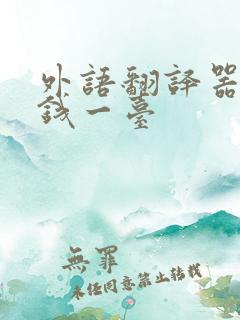 外語翻譯器
錢一臺
無罪
未經同意禁止轉載